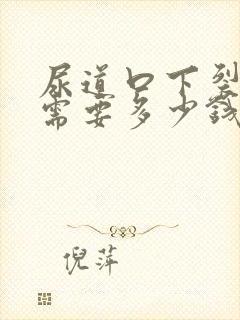 尿道口下裂
需要多少钱
倪萍